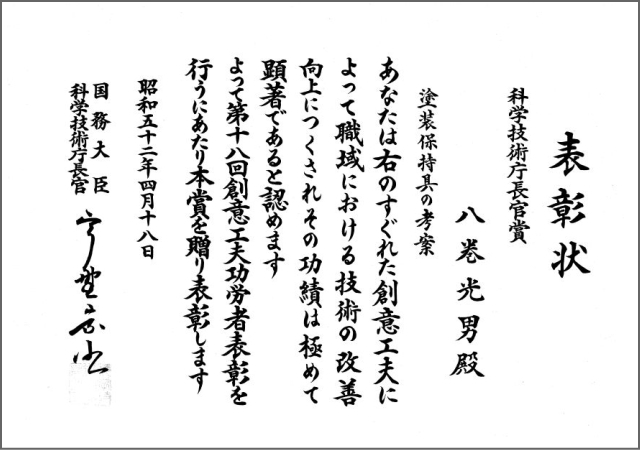 表彰状
科学技術庁長官賞
八巻光男殿
塗装保持具の考案
あなたは右のすぐれた創意工夫に
よって職域における技術の改善
向上につくされその功績は極めて
顕著であると認めます
よって第十八回創意工夫功労者表彰を
行うにあたり本賞を贈り表彰します
昭和五十二年四月十八日
国務大臣
科学技術庁長官